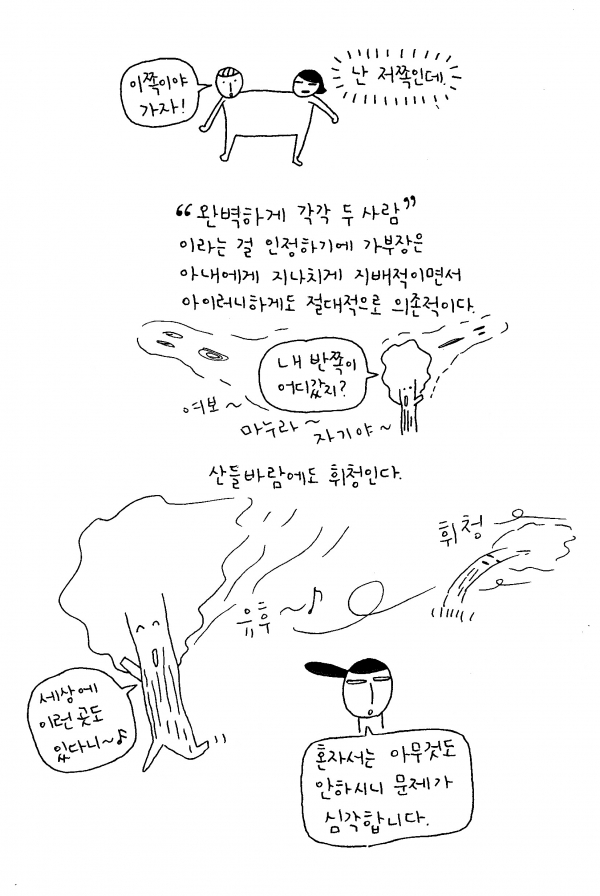 이쪽이야
가자!
난 저쪽인데.
“완벽하게 각각 두 사람”
이라는 걸 인정하기에 가부장은
아내에게 지나치게 지배적이면서
아이러니하게도 절대적으로 의존적이다.
내 반쪽이
어디갔지?
여보~
마누라~
자기야~
산들바람에도 휘청인다.
휘청
유후~♪
세상에
이런 곳도
있다니~♪
혼자서는 아무것도
안하시니 문제가
심각합니다.